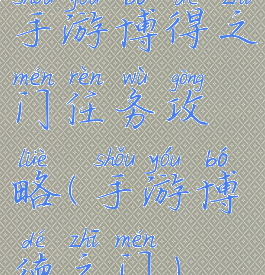 shǒu yóu bó dé zhī
手游博得之
mén rèn wù gōng
门任务攻
lüè shǒu yóu bó
略(手游博
dé zhī mén
德之门)